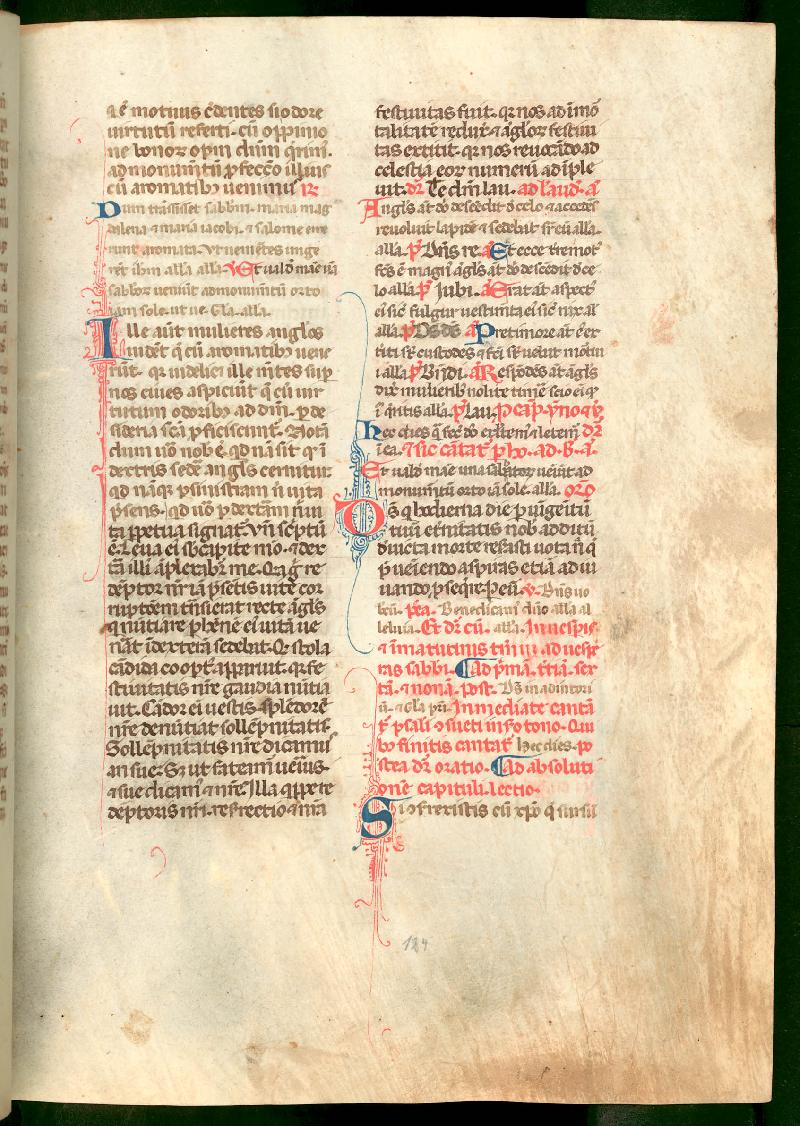 a est motiuus credentes si odore
uirtutũ referti. cũ oppinio
ne bonoꝝ opm dũm q̃rim̃.
ad monumtũ ꝓfecto illius
cũ aromatibꝫ uenimus
Dum trãsisset sabbm̃. maria mag
dalena ⁊ maria iacobi. ⁊ salome eme
runt aromata. Vt uenietes unge
rẽt ihm alla alla. Et ualde mae ũa
sabboꝝ ueniũt ad monumtũ orto
iam sole. ut ue. Gla. alla.
Ille aũt mulieres anglos
uidẽt q̃ cũ aromatibꝫ uene
rũt. qꝛ uidelicꝫ ille mẽtes suꝑ
nos ciues aspiciũt q̃ cũ uir
tutum odoribꝫ ad dm̃. ꝑ de
sideria sc̃a ꝓficiscunt̃. Notã
dum uo nob ẽ. qd nã sit qꝛ ĩ
dextris sede angls cernitur.
qd nãqꝫ ꝑ sinistram ñ uita
p̃sens. qd uo ꝑ dextãm ñ uiı
ta ꝑpetua signat̃. Vñ sc̃ptũ
ẽ. Leua eı sb capite mo. ⁊ dex
tã illı ãplexabr̃ me. Qꝛ g̃ re
dẽptor nr̃ iã p̃sẽtis uite cor
ruptõem tñsierat recte ãgls
q̃ nũtiare ꝑhẽne eı uitã ue
nãt ĩ dexterã sedebat. Qꝫ stola
cãdida coopt̃. apparuit. qꝛ fe
stiuitatis nr̃e gaudia nũtia
uit. Cãdor eı uestis. splẽdorẽ
nr̃e denũtiat sollẽpnitatis.
Sollẽpnitatis nr̃e dicamus
an sue. Sꝫ ut fateam̃ ueıus.
⁊ sue dicam̃ ⁊ nr̃e. Illa q̃ppe re
dẽptoris nr̃ı. resrectio ⁊ nr̃a
festiuitas fuit. qꝛ nos ad ĩmo
talitatẽ reduxꝫ. ⁊ ãgloꝝ festiui
tas extitit. qꝛ nos reuocãdo ad
celestia eoꝝ numerũ adĩple
uit. dꝛ Te dm̃ lau. ad laud̃. a
Angls at̃ dñ descẽdit d̃ celo ⁊ accedẽs
reuoluit lapidẽ ⁊ sedebat sr̃ eũ alla.
alla. p̃ Dñs re. a Et ecce tremot̃
fc̃s ẽ magn̾ ãgls at̃ dñ descẽdit d̃ ce
lo alla. p̃ Jubı. a Erat at̃ aspect̃
eı sic̃ fulgur uestimta eı sic̃ nix al̃
alla. p̃ Ds̃ ds̃ a Pre timore at̃ ẽr
titi st̃ custodes ⁊ fc̃ı st̃ uelut mortui
ı alla. p̃ Bñdı. a Respõdẽs at̃ ãgls
dix̃ mulierib nolite timẽ scio eı qꝫ
ĩ q̃ritis alla. p̃ Lau. p̃ cap̃. ympno qꝫ
hec dies q̃ fec̃ dñ exl̃tem̃ ⁊ letem̃ dꝛ
ĩ ea. ⁊ sic cãtat̃ p̃ ho. ad. b. a.
Et ualde mãe una sabbatoꝝ ueniũt ad
monumtũ orto iã sole. alla. oro
Ds̃ q̃ hodierna die ꝑ uigeitũ
tuũ et̃nitatis nob additũ
diuicta morte resasti uota nr̃a q̃
p̃ueiendo aspiras etiã adiu
uando ꝓseqre. Peũ. v. Dñs uo
bcũ. r̃ea. Benedicam̃ dño alla al
leluia. Et dr̃ cũ. alla. In uespis
⁊ in matutinis tm̃ ad uespe
ras sabbı. ¶ Ad p̃mã. tciã. sex
tã. ⁊ nonã. post. Ds̃ in adiutori
ũ. ⁊ Gla pr̃ı. Inmediate cantã
t̃ psalı ɔsueti in fo tono. Qui
bꝫ finitis cantat̃ hec dies. po
stea dꝛ oratio. ¶ Ad absoluti
onẽ capitulı. lectio.
Si ɔsrexistis cũ xp̃o q̃ sursũ
124